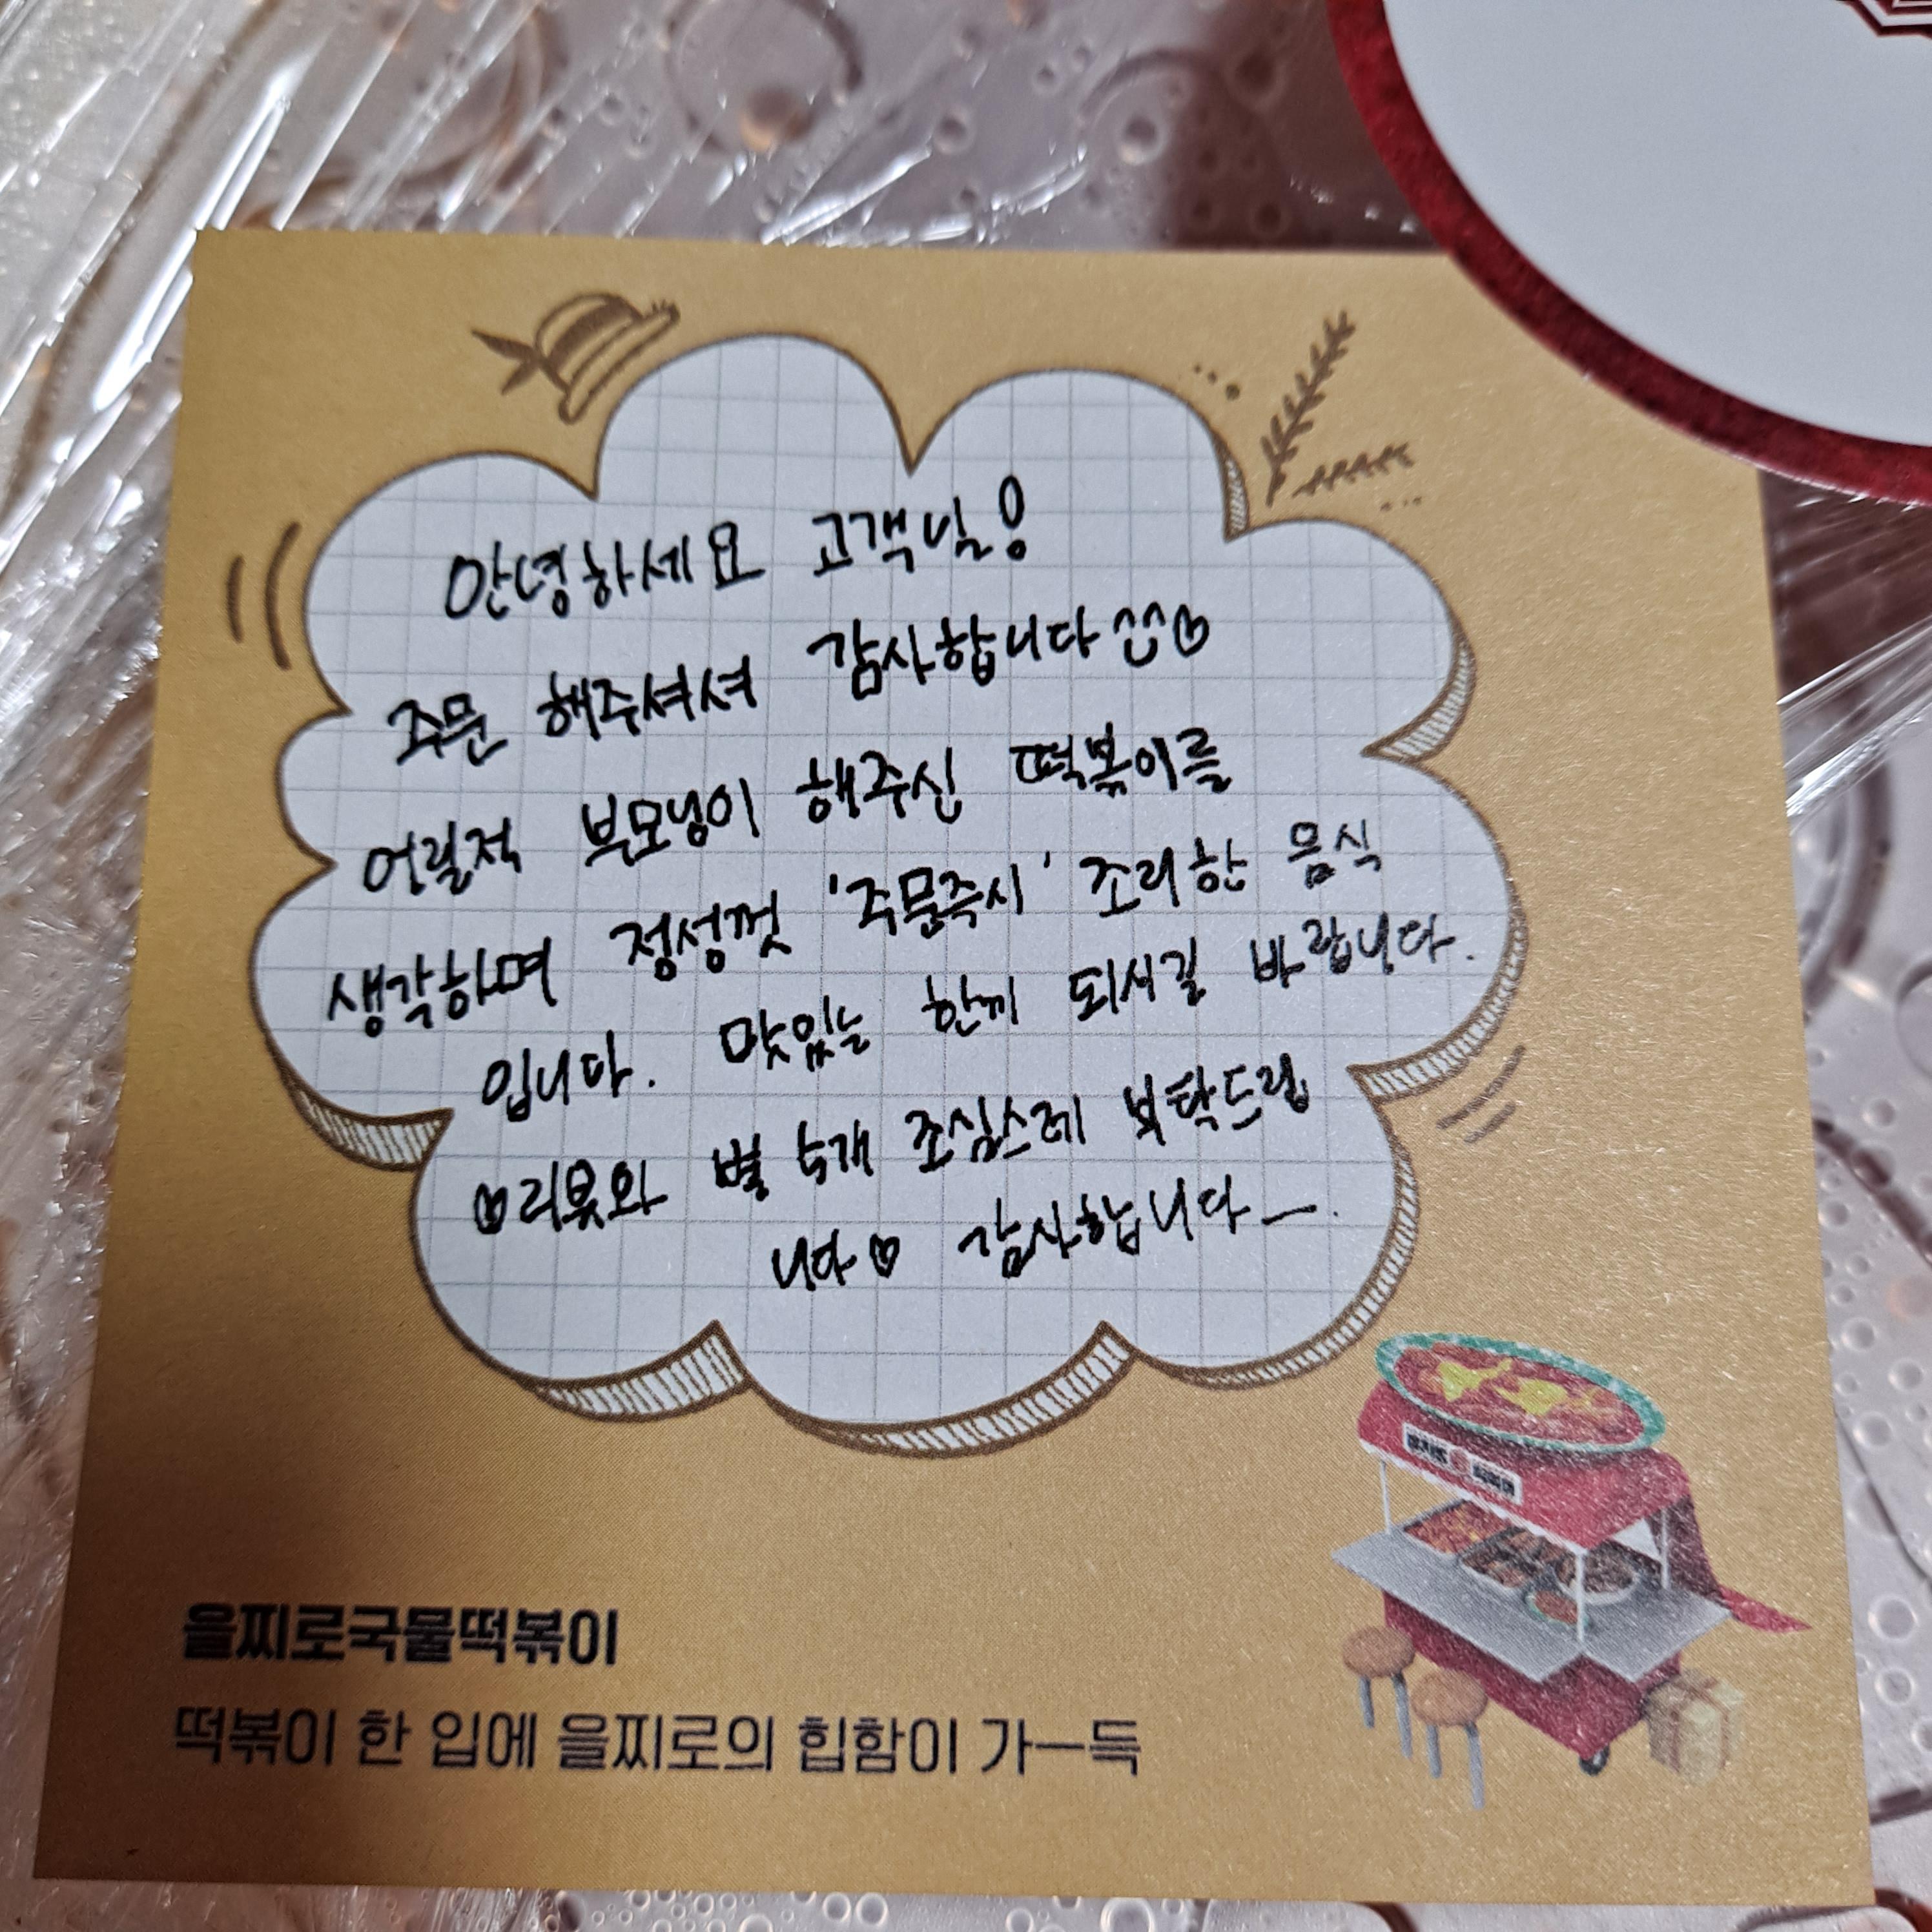 안녕하세요 고객님!
주문 해주셔셔 감사합니다 ^^♡
어릴적 부모님이 해주신 떡볶이를
생각하며 정성껏 '주문즉시' 조리한 음식
입니다. 맛있는 한끼 되시길 바랍니다.
♡리뷰와 별 5개 조심스레 부탁드립
니다♡ 감사합니다ㅡ.
을찌로국물떡볶이
떡볶이 한 입에 을찌로의 힙함이 가ㅡ득